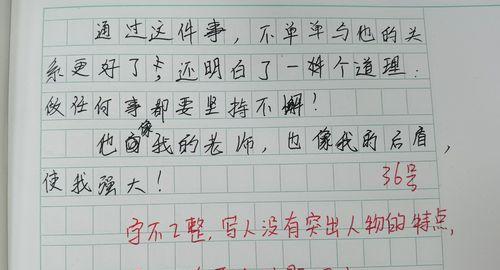 通过这件事，不单单与他的关
系更好了，还明白了一个道理：
做任何事都要坚持不懈！
他像我的老师，也像我的后盾，
使我强大！
36号
字不工整，写人没有突出人物的特点，